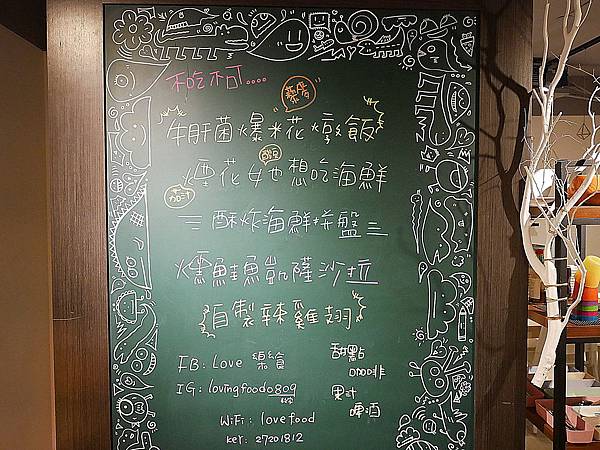 不吃不可....
牛肝菌爆米花燉飯
煙花女也想吃海鮮
加汁
酥炸海鮮拼盤
燻鮭魚凱薩沙拉
自製辣雞翅
FB: Love 樂食
IG: lovingfood0809
WiFi: lovefood
key: 27201812
甜點
咖啡
果汁
啤酒